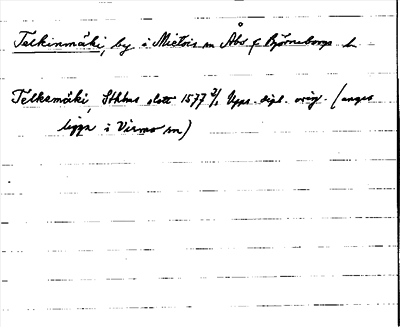 Telkinmäki, by i Mietois sn Åbo & Björneborgs l.
Telkemäki, Sthlms slott 1577 3/2 Upps. dipl. orig. (anges
ligga i Virmo sn)